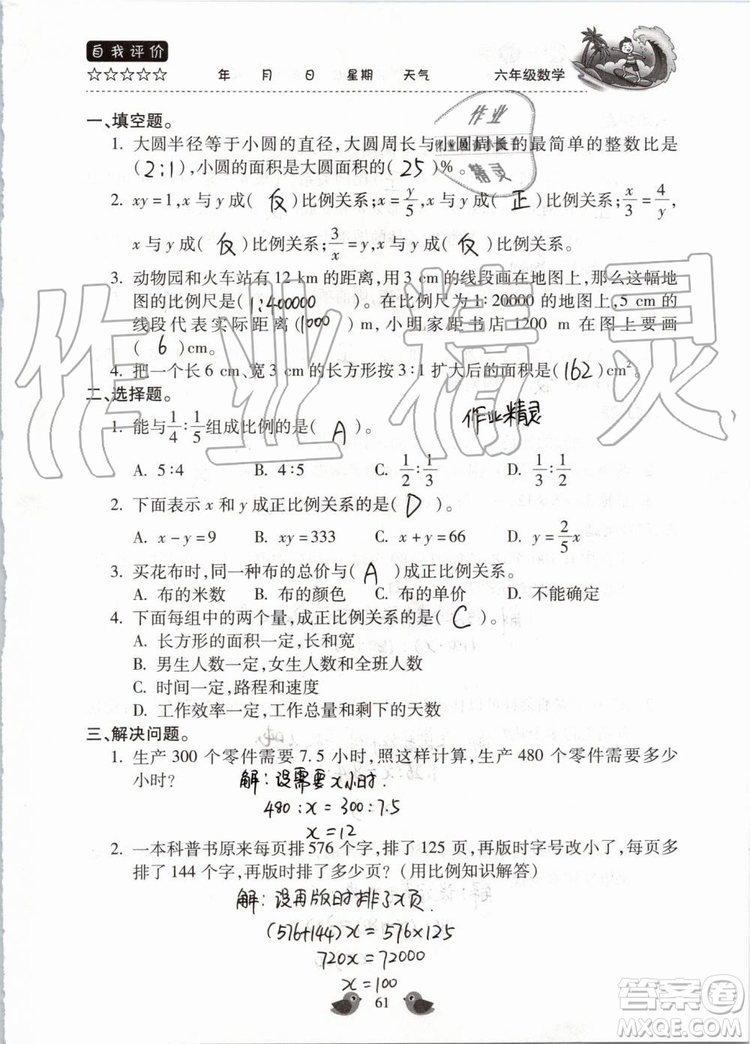 自我评价
☆☆☆☆☆ 年 月 日 星期 天气 六年级数学
一、填空题。
1. 大圆半径等于小圆的直径,大圆周长与小圆周长的最简单的整数比是
(2:1),小圆的面积是大圆面积的(25)%。
2. xy=1,x 与 y 成(反)比例关系;x=y/5,x 与 y 成(正)比例关系;x/3=4/y,
x 与 y 成(反)比例关系;3/x=y,x 与 y 成(反)比例关系。
3. 动物园和火车站有 12 km 的距离,用 3 cm 的线段画在地图上,那么这幅地
图的比例尺是(1:400000)。在比例尺为1:20000 的地图上,5 cm 的
线段代表实际距离(1000)m,小明家距书店 1200 m 在图上要画
(6)cm。
4. 把一个长6 cm、宽3 cm 的长方形按3:1扩大后的面积是(162)cm²。
二、选择题。
1. 能与1/4:1/5组成比例的是(A)。
作业精灵
A. 5:4 B. 4:5 C. 1/2:1/3 D. 1/3:1/2
2. 下面表示 x 和 y 成正比例关系的是(D)。
A. x-y=9 B. xy=333 C. x+y=66 D. y=2/5x
3. 买花布时,同一种布的总价与(A)成正比例关系。
A. 布的米数 B. 布的颜色 C. 布的单价 D. 不能确定
4. 下面每组中的两个量,成正比例关系的是(C)。
A. 长方形的面积一定,长和宽
B. 男生人数一定,女生人数和全班人数
C. 时间一定,路程和速度
D. 工作效率一定,工作总量和剩下的天数
三、解决问题。
1. 生产 300 个零件需要 7.5 小时,照这样计算,生产 480 个零件需要多少
小时?
解:设需要x小时
480:x=300:7.5
x=12
2. 一本科普书原来每页排576 个字,排了 125 页,再版时字号改小了,每页多
排了 144 个字,再版时排了多少页?(用比例知识解答)
解:设再版时排了x页.
(576+144)x=576×125
720x=72000
x=100
61
作业
精灵
作业精灵
答案圈
MXQE.COM